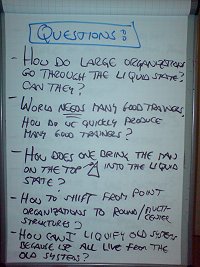 QUESTIONS:
- HOW DO LARGE ORGANIZATIONS
GO THROUGH THE LIQUID STATE?
CAN THEY?
- WORLD NEEDS MANY GOOD TRAINERS.
HOW DO WE QUICKLY PRODUCE
MANY GOOD TRAINERS?
- HOW DOES ONE BRING THE MAN
ON THE TOP INTO THE LIQUID
STATE?
- HOW TO SHIFT FROM POINT
ORGANIZATIONS TO ROUND/MULTI-
CENTER
STRUCTURES?
- HOW CAN I LIQUIFY OLD SYSTEMS
BECAUSE WE ALL LIVE FROM THE
OLD SYSTEMS?